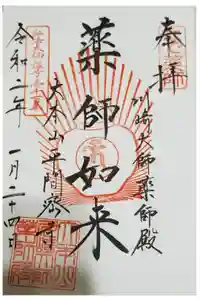 奉拝
川崎大師薬師殿
薬師如来
大本山平間寺
令和二年
一月二十四日